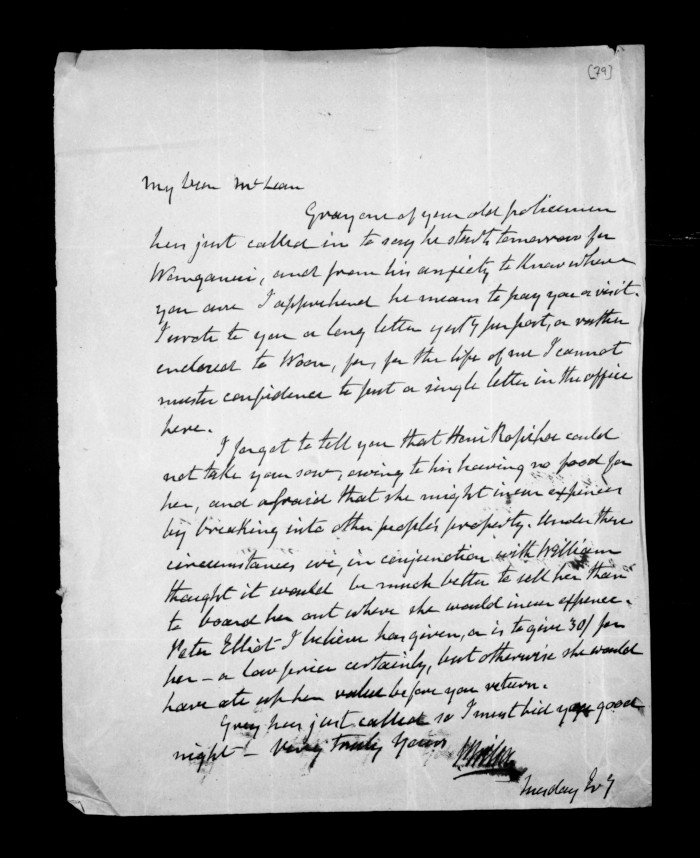 [79]
My Dear McLean
Gray one of your old policemen
has just called in to say he starts tomorrow for
Wanganui, and from his anxiety to know where
you are I apprehend he means to pay you a visit.
I wrote to you a long letter yesty per post, or rather
enclosed to Woon, for, for the life of me I cannot
muster confidence to post a single letter in the office
here.
I forgot to tell you that Honi Ropiha could
not take your sow, owing to his having no food for
her, and afraid that she might incur expences
by breaking into other people's property. Under these
circumstances we, in conjunction with William
thought it would be much better to sell her than
to board her out where she would incur expence.
Peter Elliot I believe has given, or is to give 30/ for
her – a low price certainly, but otherwise she would
have ate up her value before you return.
Gray has just called so I must bid you good
night – Very truly Yours
Tuesday Evg